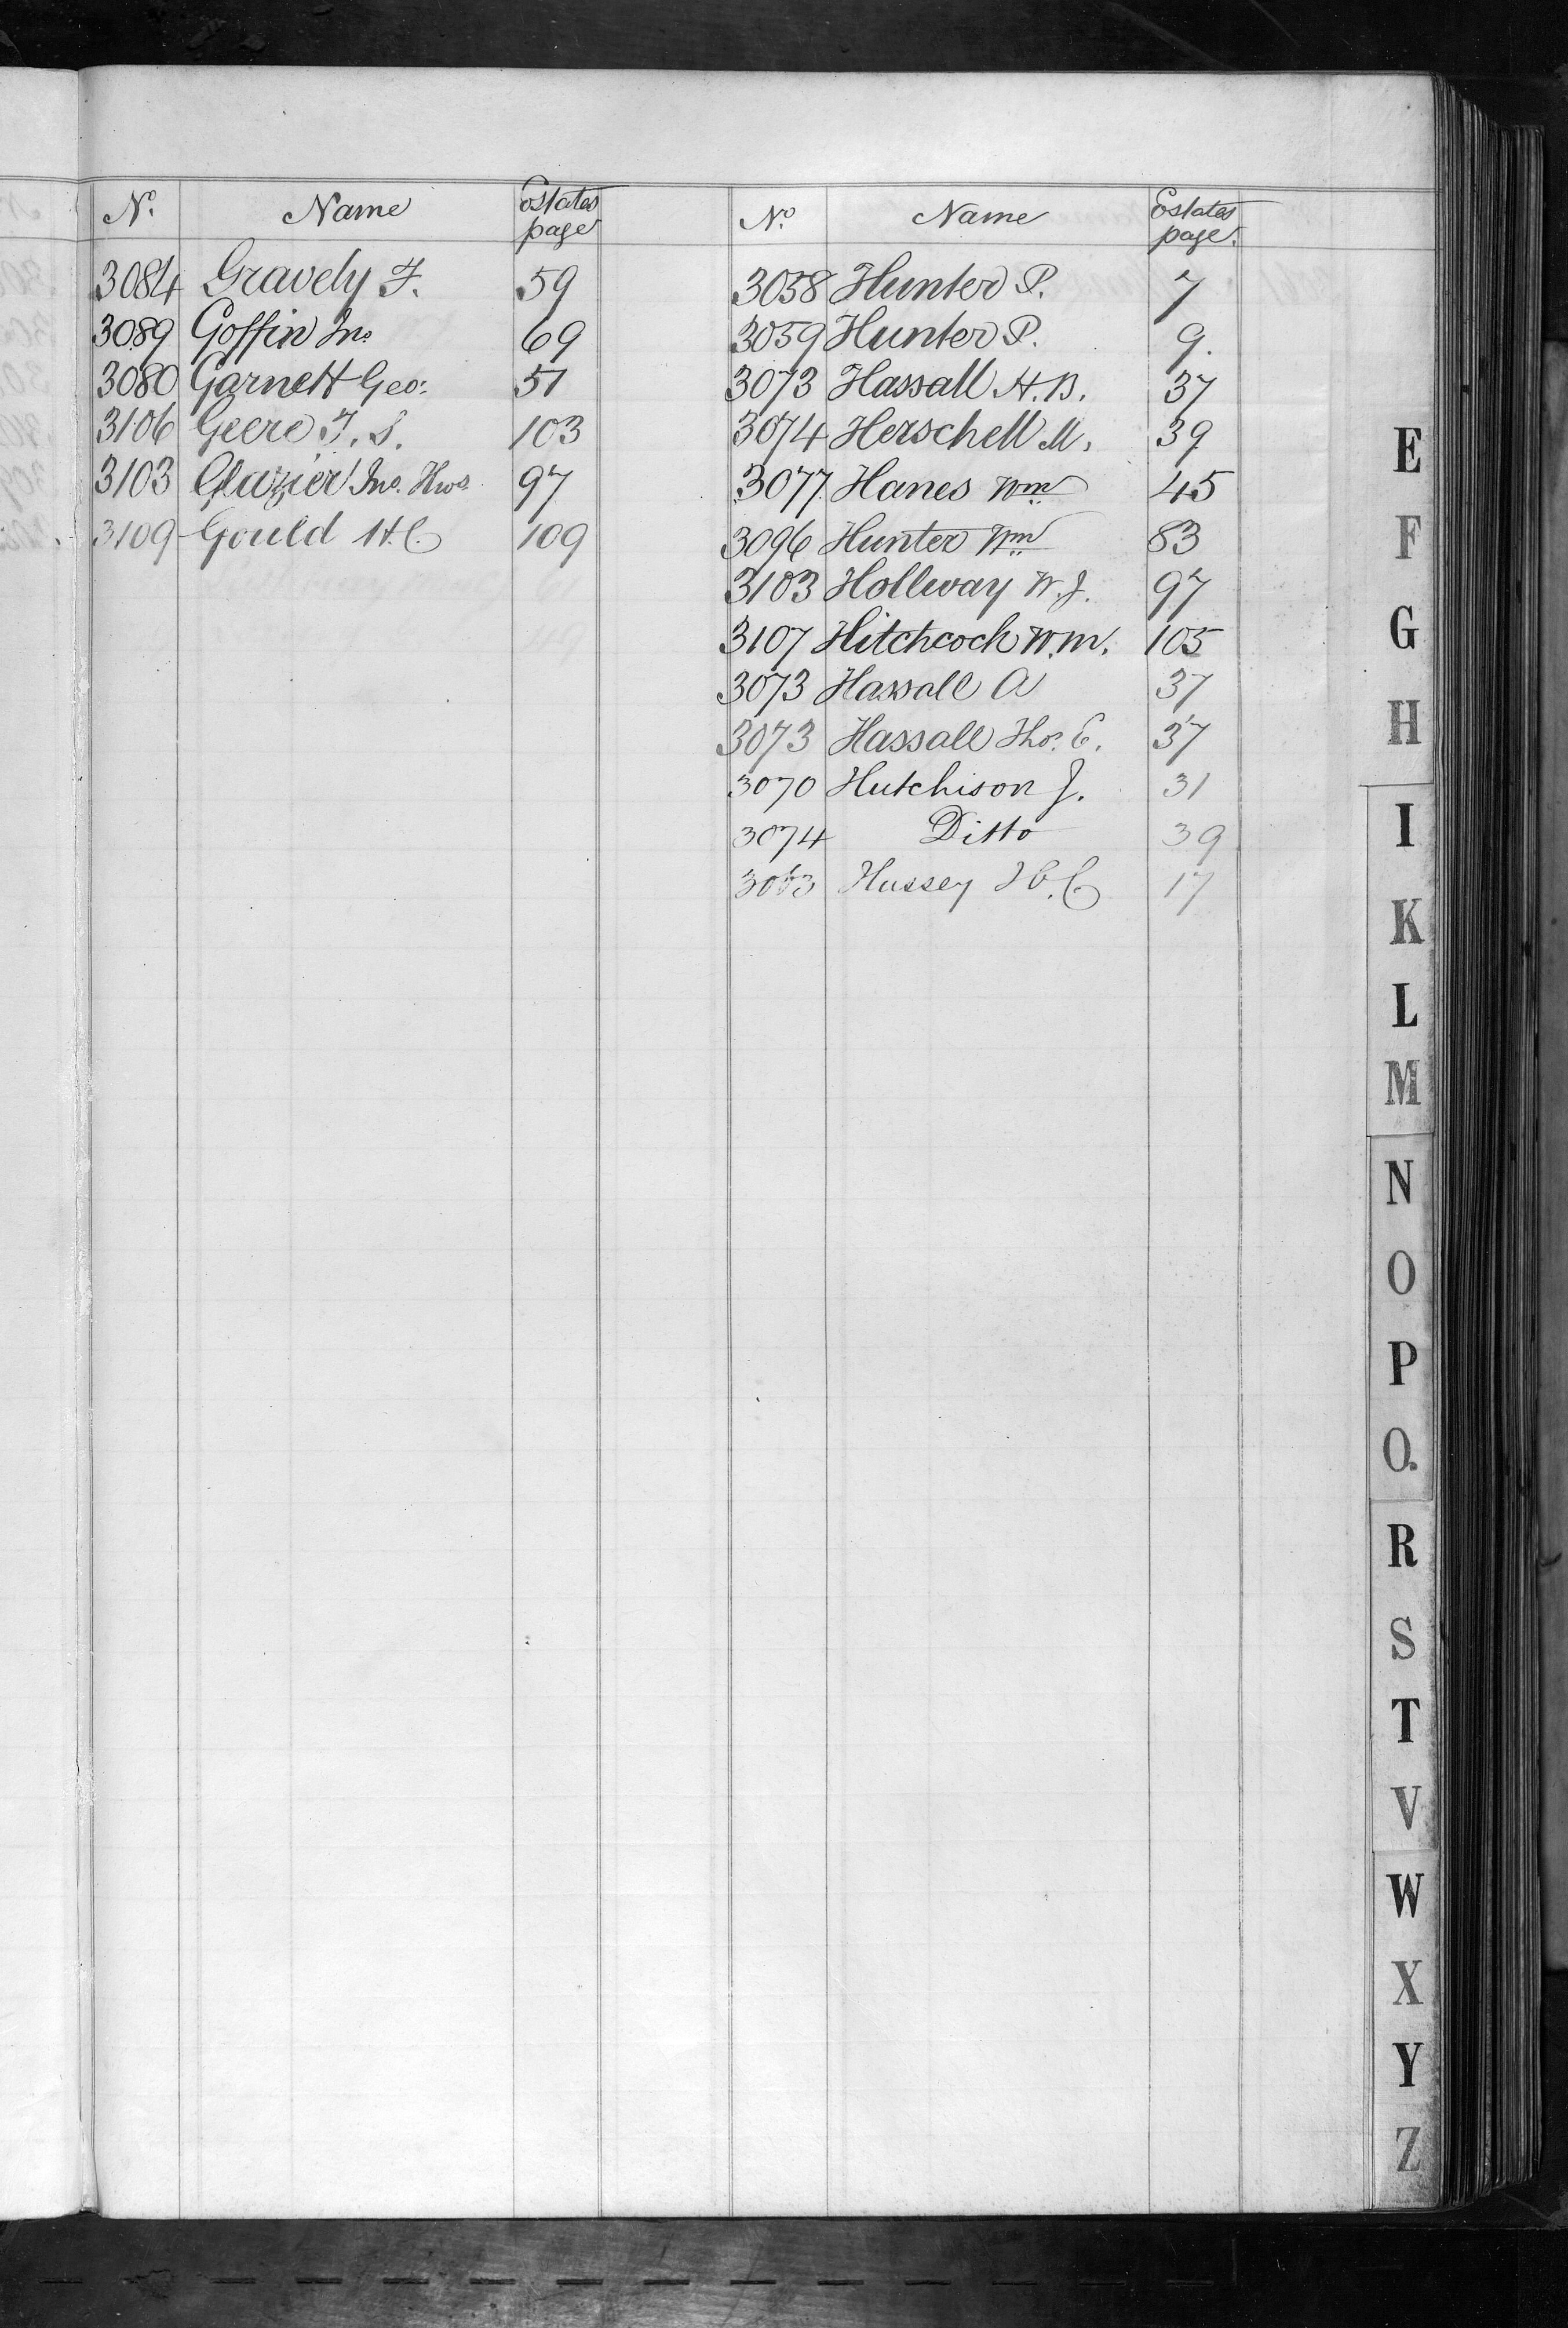 No. Name Estates page
3084 Gravely F. 59
3089 Goffin Jno 69
3080 Garnett Geo: 51
3106 Geere F. S. 103
3103 Glazier Jno. Hws. 97
3109 Gould H.C. 109
No. Name Estates page.
3058 Hunter P. 7
3059 Hunter P. 9.
3073 Hassall H.B. 37
3074 Herschell M. 39
3077 Hanes Wm 45
3096 Hunter Wm 83
3103 Hollway W. J. 97
3107 Hitchcock W.m. 105
3073 Hassall A 37
3073 Hassall Tho. E. 37
3070 Hutchison J. 31
3074 Ditto 39
3063 Hussey H.C 17
E
F
G
H
I
K
L
M
N
O
P
Q.
R
S
T
V
W
X
Y
Z